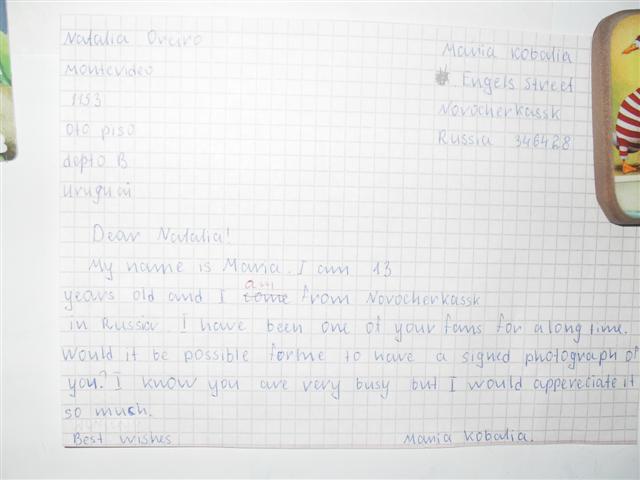 Natalia Oreiro
Montevideo
1153
oto piso
depto B
Uruguai
Maria Kobalia
Engels street
Novocherkassk
Russia 346428
Dear Natalia!
My name is Maria. I am 13
years old and I am from Novocherkassk
in Russia. I have been one of your fans for a long time.
Would it be possible forme to have a signed photograph of
you? I know you are very busy but I would appereciate it
so much.
Best wishes
Maria Kobalia.